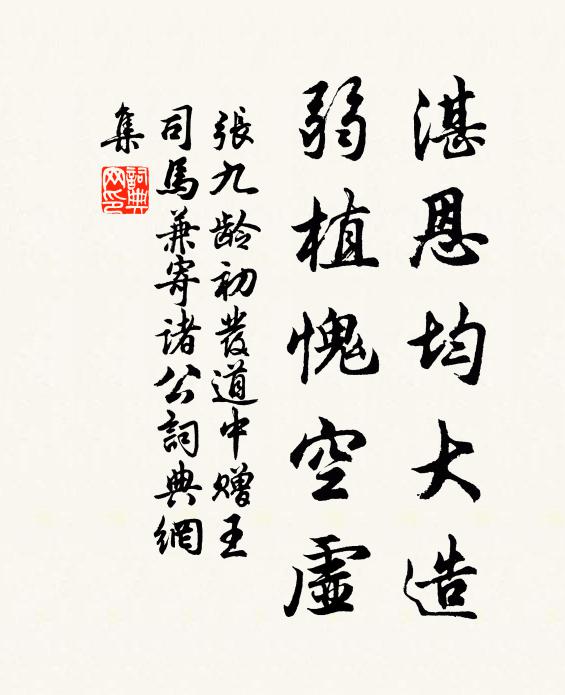 湛恩均大造
弱植愧空虛
張九龄初發道中赠王
司馬兼寄諸公詞典網
集
詞典
网印